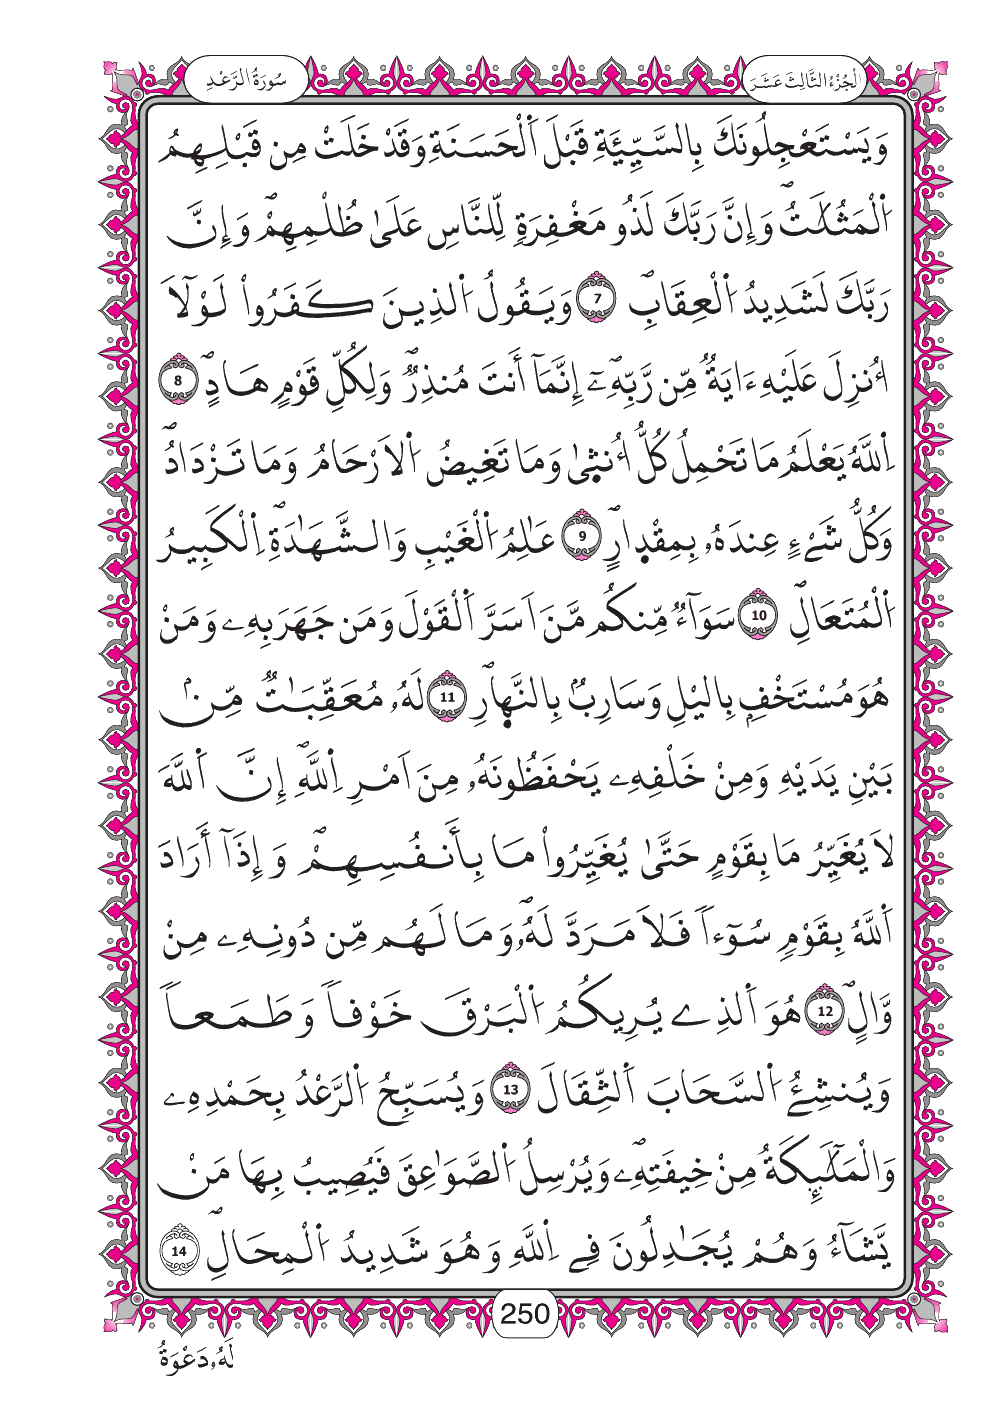 الْجُزْءُ الثَّالِثَ عَشَرَ
سُورَةُ الرَّعْدِ
وَيَسْتَعْجِلُونَكَ بِالسَّيِّئَةِ قَبْلَ اَ۬لْحَسَنَةِ وَقَدْ خَلَتْ مِن قَبْلِهِمُ
اُ۬لْمَثُلَٰتُۖ وَإِنَّ رَبَّكَ لَذُو مَغْفِرَةٖ لِّلنَّاسِ عَلَىٰ ظُلْمِهِمْۖ وَإِنَّ
رَبَّكَ لَشَدِيدُ اُ۬لْعِقَابِۖ 7 وَيَقُولُ اُ۬لذِينَ كَفَرُواْ لَوْلَآ
أُنزِلَ عَلَيْهِ ءَايَةٞ مِّن رَّبِّهِۦٓۖ إِنَّمَآ أَنتَ مُنذِرٞۖ وَلِكُلِّ قَوْمٍ هَادٍۖ 8
اِ۬للَّهُ يَعْلَمُ مَا تَحْمِلُ كُلُّ أُنث۪ىٰ وَمَا تَغِيضُ اُ۬لَارْحَامُ وَمَا تَزْدَادُۖ
وَكُلُّ شَےْءٍ عِندَهُۥ بِمِقْد۪ارٍۖ 9 عَٰلِمُ اُ۬لْغَيْبِ وَالشَّهَٰدَةِۖ اِ۬لْكَبِيرُ
اُ۬لْمُتَعَالِۖ 10 سَوَآءٞ مِّنكُم مَّنَ اَسَرَّ اَ۬لْقَوْلَ وَمَن جَهَرَ بِهِۦ وَمَنْ
هُوَ مُسْتَخْفِۢ بِاليْلِ وَسَارِبُۢ بِالنَّه۪ارِۖ 11 لَهُۥ مُعَقِّبَٰتٞ مِّنۢ
بَيْنِ يَدَيْهِ وَمِنْ خَلْفِهِۦ يَحْفَظُونَهُۥ مِنَ اَمْرِ اِ۬للَّهِۖ إِنَّ اَ۬للَّهَ
لَا يُغَيِّرُ مَا بِقَوْمٍ حَتَّىٰ يُغَيِّرُواْ مَا بِأَنفُسِهِمْۖ وَإِذَآ أَرَادَ
اَ۬للَّهُ بِقَوْمٖ سُوٓءاٗ فَلَا مَرَدَّ لَهُۥۖ وَمَا لَهُم مِّن دُونِهِۦ مِنْ
وَّالٍۖ 12 هُوَ اَ۬لذِے يُرِيكُمُ اُ۬لْبَرْقَ خَوْفاٗ وَطَمَعاٗ
وَيُنشِئُ اُ۬لسَّحَابَ اَ۬لثِّقَالَ 13 وَيُسَبِّحُ اُ۬لرَّعْدُ بِحَمْدِهِۦ
وَالْمَلَٰٓئِكَةُ مِنْ خِيفَتِهِۦۖ وَيُرْسِلُ اُ۬لصَّوَٰعِقَ فَيُصِيبُ بِهَا مَنْ
يَّشَآءُ وَهُمْ يُجَٰدِلُونَ فِے اِ۬للَّهِ وَهُوَ شَدِيدُ اُ۬لْمِحَالِۖ 14
250
لَهُۥ دَعْوَةُ